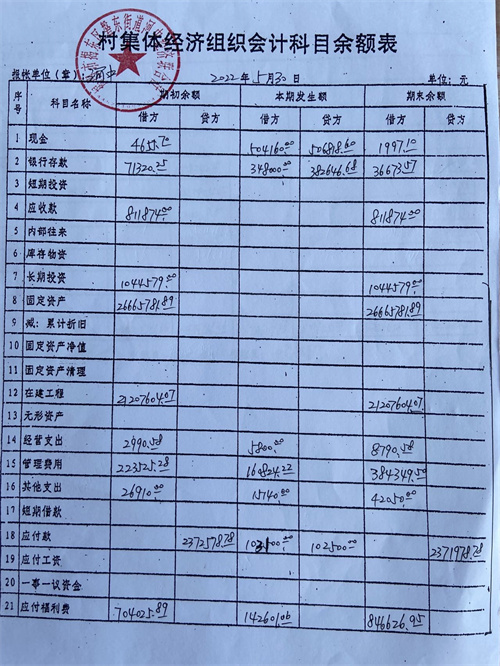 村集体经济组织会计科目余额表
报账单位(章): 河中 2022年5月30日 单位: 元
序号 科目名称 期初余额 本期发生额 期末余额
借方 贷方 借方 贷方 借方 贷方
1 现金 4655.70 504160.00 506818.60 1997.10
2 银行存款 71320.25 348000.00 382646.68 36673.57
3 短期投资
4 应收款 811874.00 811874.00
5 内部往来
6 库存物资
7 长期投资 1044579.00 1044579.00
8 固定资产 2666781.89 2666781.89
9 减: 累计折旧
10 固定资产净值
11 固定资产清理
12 在建工程 21207604.07 21207604.07
13 无形资产
14 经营支出 2990.58 5800.00 8790.58
15 管理费用 223525.28 160824.22 384349.50
16 其他支出 26910.00 15140.00 42050.00
17 短期借款
18 应付款 2372578.78 102500.00 2371978.78
19 应付工资
20 一事一议资金
21 应付福利费 704025.89 142601.06 846626.95